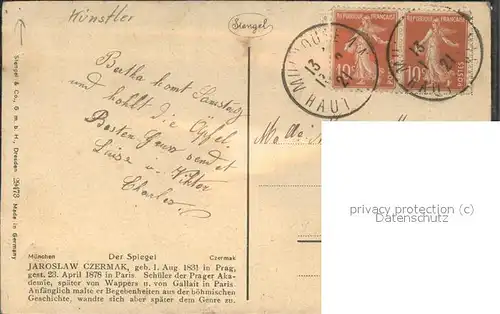 Künstler
Stengel
RÉPUBLIQUE FRANÇAISE
RÉPUBLIQUE FRANÇAISE
MULHOUSE
13
21
HAUT
10c
10c
POSTES
Bertha komt Samstag
und hohlt die Öpfel.
Besten Gruss sendet
Luise u. Viktor
Charles
Mada
privacy protection (c)
www.ansichtskarten-center.de
Stengel & Co., G. m. b. H., Dresden 29473 Made in Germany
München Der Spiegel Czermak
JAROSLAW CZERMAK, geb. 1. Aug 1831 in Prag,
gest. 23. April 1878 in Paris. Schüler der Prager Aka-
demie, später von Wappers u. von Gallait in Paris.
Anfänglich malte er Begebenheiten aus der böhmischen
Geschichte, wandte sich aber später dem Genre zu.